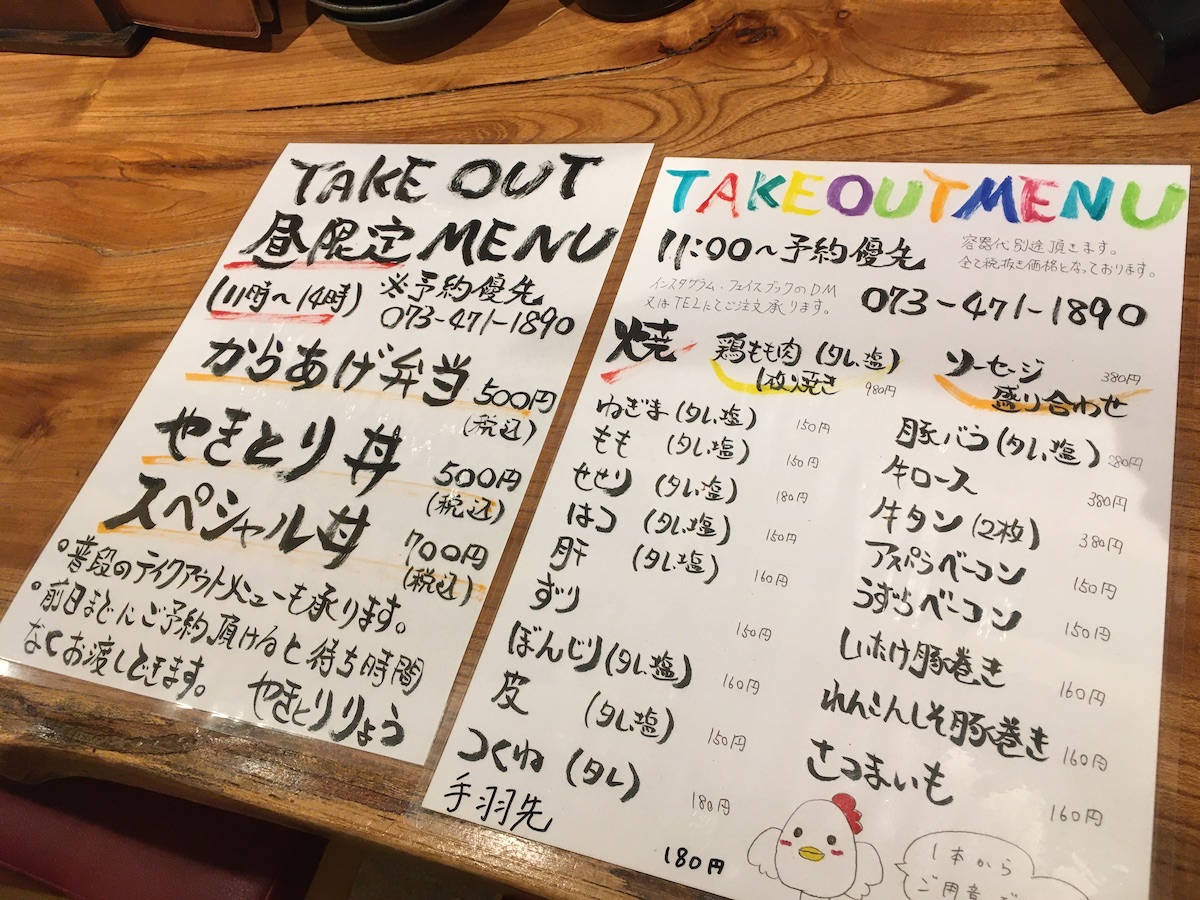 TAKE OUT
昼限定 MENU
(11時〜14時) ※予約優先
073-471-1890
からあげ弁当 500円
(税込)
やきとり丼 500円
(税込)
スペシャル丼 700円
(税込)
。普段のテイクアウトメニューも承ります。
。前日までにご予約頂けると待ち時間
なくお渡しできます。
やきとりりょう
TAKEOUTMENU
11:00〜予約優先
容器代別途頂きます。
全て税抜き価格となっております。
インスタグラム・フェイスブックのDM
又はTELにてご注文承ります。
073-471-1890
焼
鶏もも肉 (タレ、塩)
1枚焼き 980円
ねぎま (タレ、塩) 150円
もも (タレ、塩) 150円
せせり (タレ、塩) 180円
はつ (タレ、塩) 150円
肝 (タレ、塩) 160円
ずり 150円
ぼんじり (タレ、塩) 160円
皮 (タレ、塩) 150円
つくね (タレ) 180円
手羽先 180円
ソーセージ 380円
盛り合わせ
豚バラ (タレ、塩) 280円
牛ロース 380円
牛タン (2枚) 380円
アスパラベーコン 150円
うずらベーコン 150円
しいたけ豚巻き 160円
れんこんしそ豚巻き 160円
さつまいも 160円
1本から
ご用意